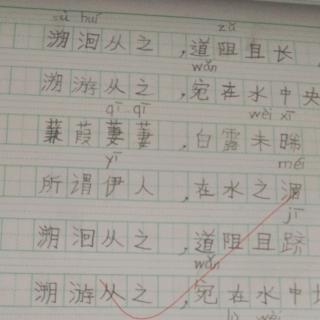 sù huí zǔ
溯洄从之,道阻且长,
wǎn
溯游从之,宛在水中央
qī qī wèi xī
蒹葭萋萋,白露未晞
yī méi
所谓伊人,在水之湄
jī
溯洄从之,道阻且跻
wǎn
溯游从之,宛在水中